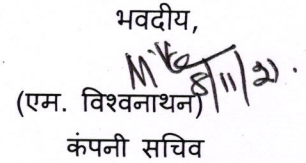 भवदीय,
8/11/21.
(एम. विश्वनाथन)
कंपनी सचिव